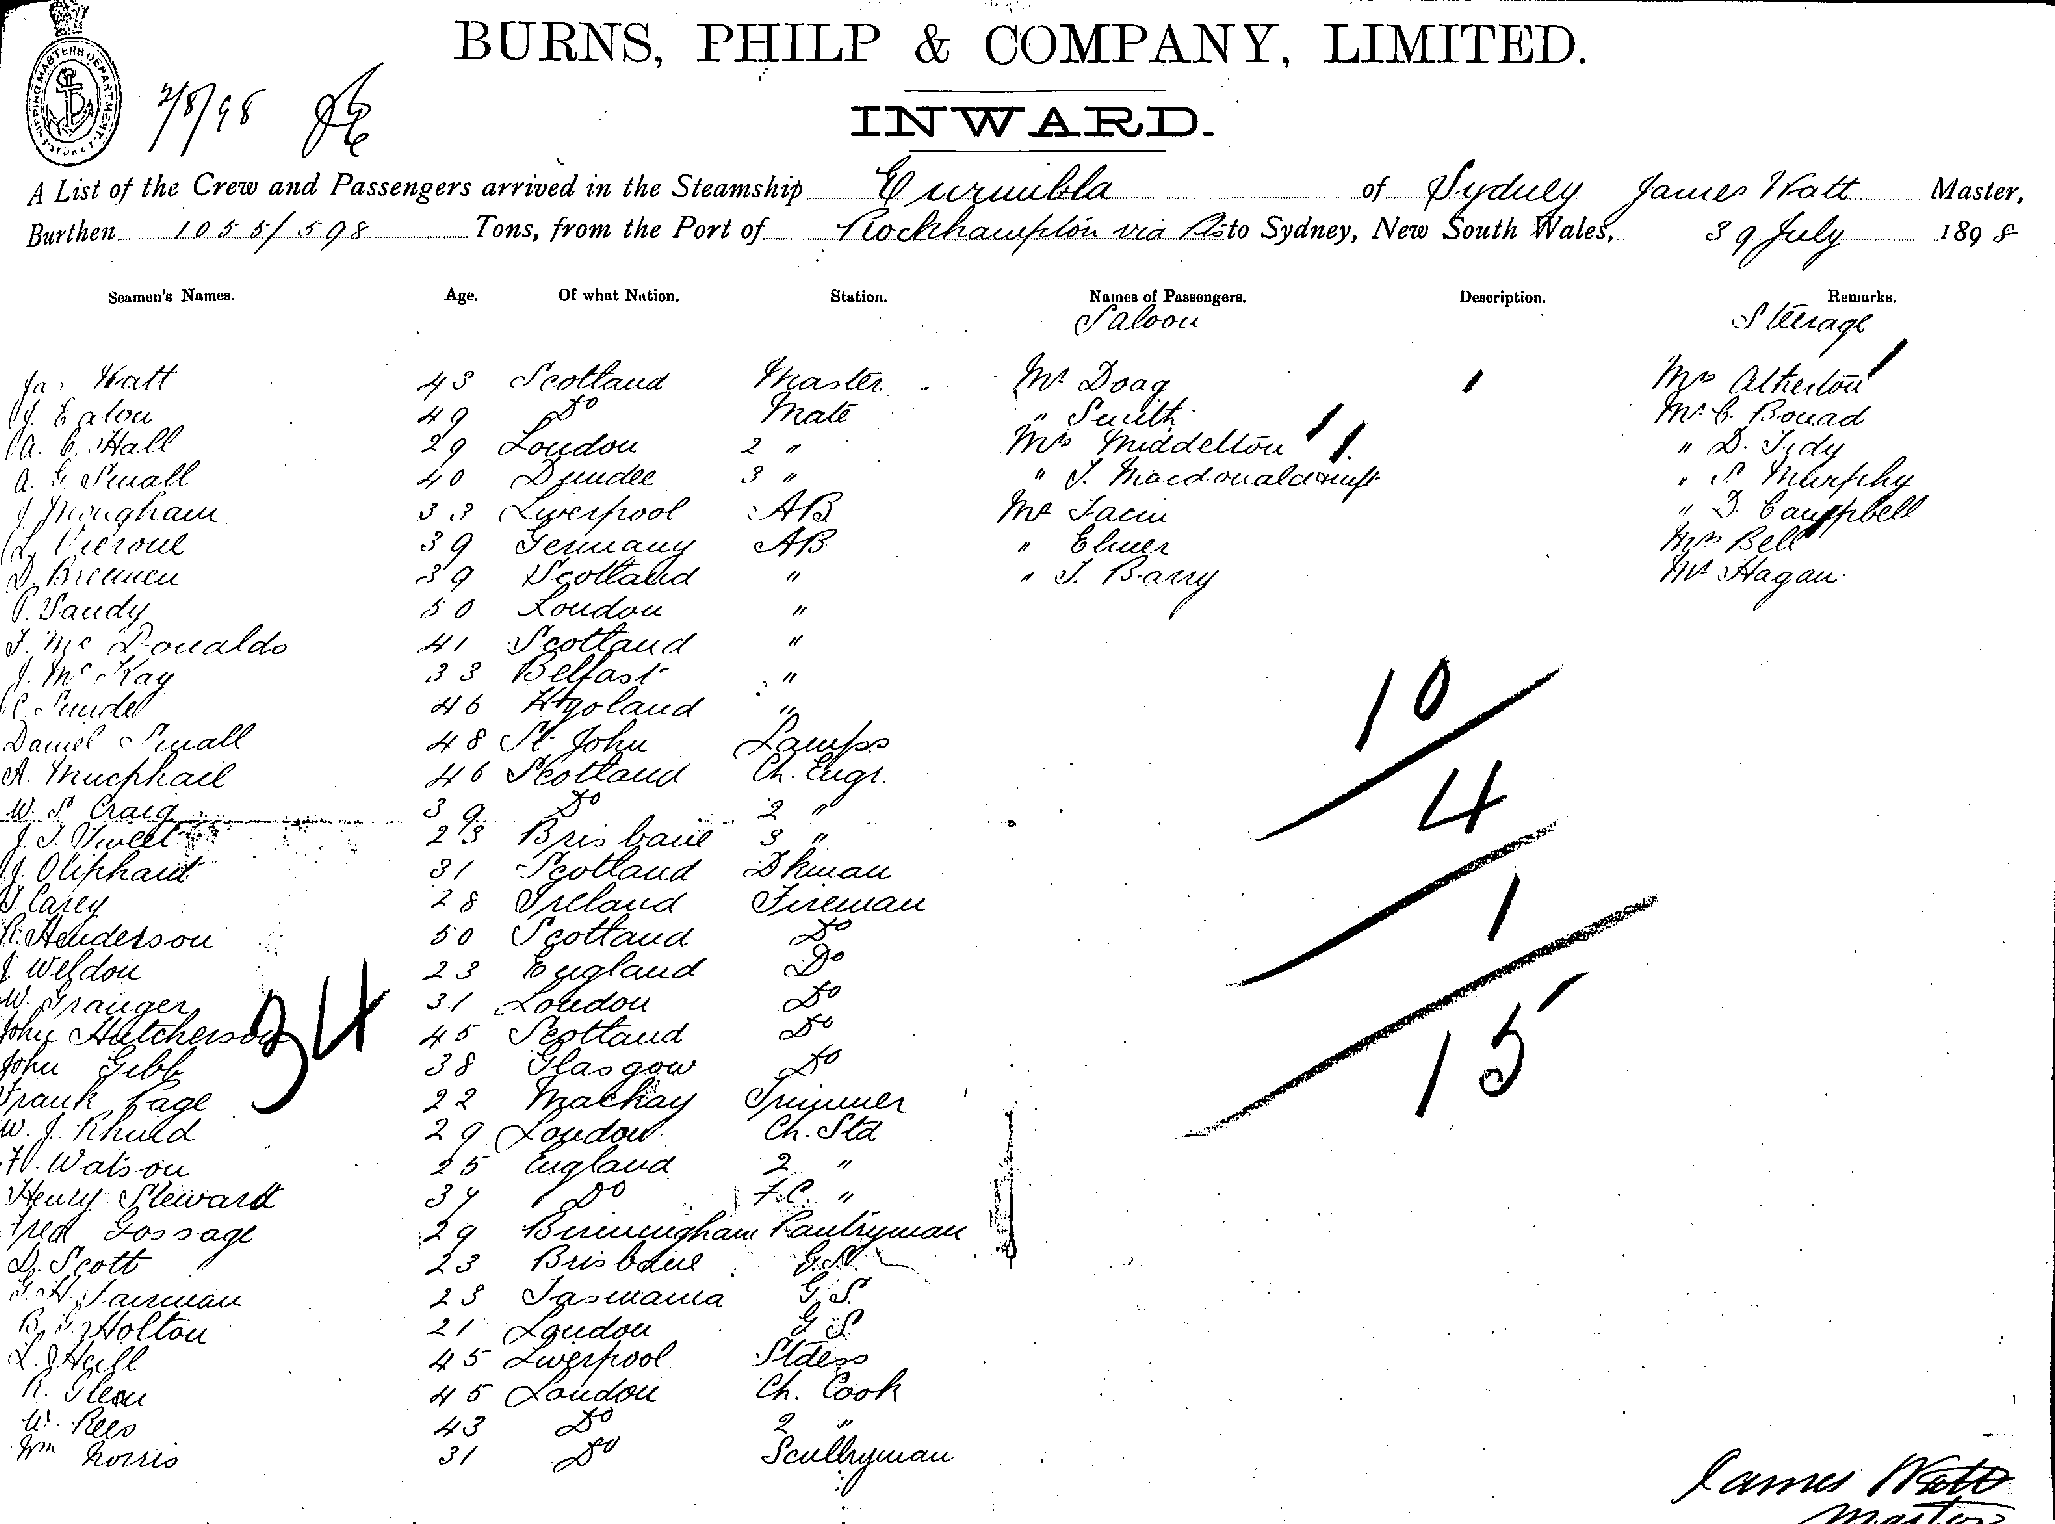 BURNS, PHILP & COMPANY, LIMITED.
2/8/98
INWARD.
A List of the Crew and Passengers arrived in the Steamship Eurimbla of Sydney James Watt Master,
Burthen 1055/598 Tons, from the Port of Rockhampton via to Sydney, New South Wales, July 1898
Seamen's Names. Age. Of what Nation. Station. Names of Passengers. Description. Remarks.
Saloon Steerage
Jas Watt 43 Scotland Master Mr Doag Mrs Atherton
J. Eaton 49 Do Mate " Smith Mr C. Bouad
A. C. Hall 29 London 2 " Mrs Middelton " D. Tudy
A. G. Small 40 Dundee 3 " " J. Macdonald " S Murphy
J. Mougham 33 Liverpool AB Mr Facin " D. Campbell
L. Vieroue 39 Germany AB " Elmer Mrs Bell
D. Brennen 39 Scotland " " J. Barry Mr Hagan
P. Sandy 50 London "
J. McDonalds 41 Scotland "
J. McKay 33 Belfast "
46 "
Daniel Small 48 St John Lamps
A. Mucphail 46 Scotland Ch. Engr.
W. S. Craig 39 Do 2 "
J. T. Sweet 23 Brisbane 3 "
J. Oliphant 31 Scotland Dkman
J Carey 28 Ireland Fireman
R. Henderson 50 Scotland Do
J Weldon 23 England Do
W. Granger 31 London Do
John Hutcherson 45 Scotland Do
John Gibb 38 Glasgow Do
Frank Page 22 Mackay Trimmer
W. J. 29 London Ch. Std
H. Watson 25 England 2 "
Henry Stewart 37 Do F.C. "
Fred Gossage 29 Birmingham Pantryman
D. Scott 23 Brisbane G.S.
G. H. Fairman 23 Tasmania G.S.
B. G. Holton 21 London G S
L. J. Hull 45 Liverpool Stdess
R. Glen 45 London Ch. Cook
W. Rees 43 Do 2 "
Wm Norris 31 Do Scullryman
34
10
4
1
15
James Watt
Master